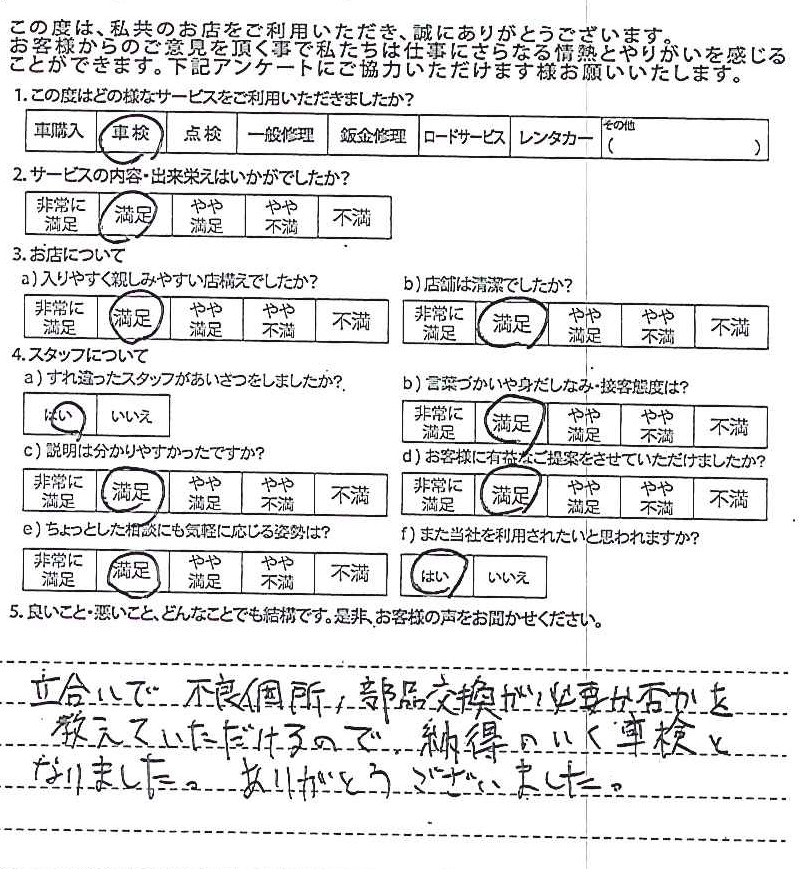 この度は、私共のお店をご利用いただき、誠にありがとうございます。
お客様からのご意見を頂く事で私たちは仕事にさらなる情熱とやりがいを感じる
ことができます。下記アンケートにご協力いただけます様お願いいたします。
1.この度はどの様なサービスをご利用いただきましたか?
車購入 車検 点検 一般修理 鈑金修理 ロードサービス レンタカー その他 ( )
2.サービスの内容・出来栄えはいかがでしたか?
非常に満足 満足 やや満足 やや不満 不満
3.お店について
a)入りやすく親しみやすい店構えでしたか?
非常に満足 満足 やや満足 やや不満 不満
b)店舗は清潔でしたか?
非常に満足 満足 やや満足 やや不満 不満
4.スタッフについて
a)すれ違ったスタッフがあいさつをしましたか?
はい いいえ
b)言葉づかいや身だしなみ・接客態度は?
非常に満足 満足 やや満足 やや不満 不満
c)説明は分かりやすかったですか?
非常に満足 満足 やや満足 やや不満 不満
d)お客様に有益なご提案をさせていただけましたか?
非常に満足 満足 やや満足 やや不満 不満
e)ちょっとした相談にも気軽に応じる姿勢は?
非常に満足 満足 やや満足 やや不満 不満
f)また当社を利用されたいと思われますか?
はい いいえ
5.良いこと・悪いこと、どんなことでも結構です。是非、お客様の声をお聞かせください。
立合いで 不良個所、部品交換が必要か否かを
教えていただけるので、納得のいく車検と
なりました。ありがとうございました。